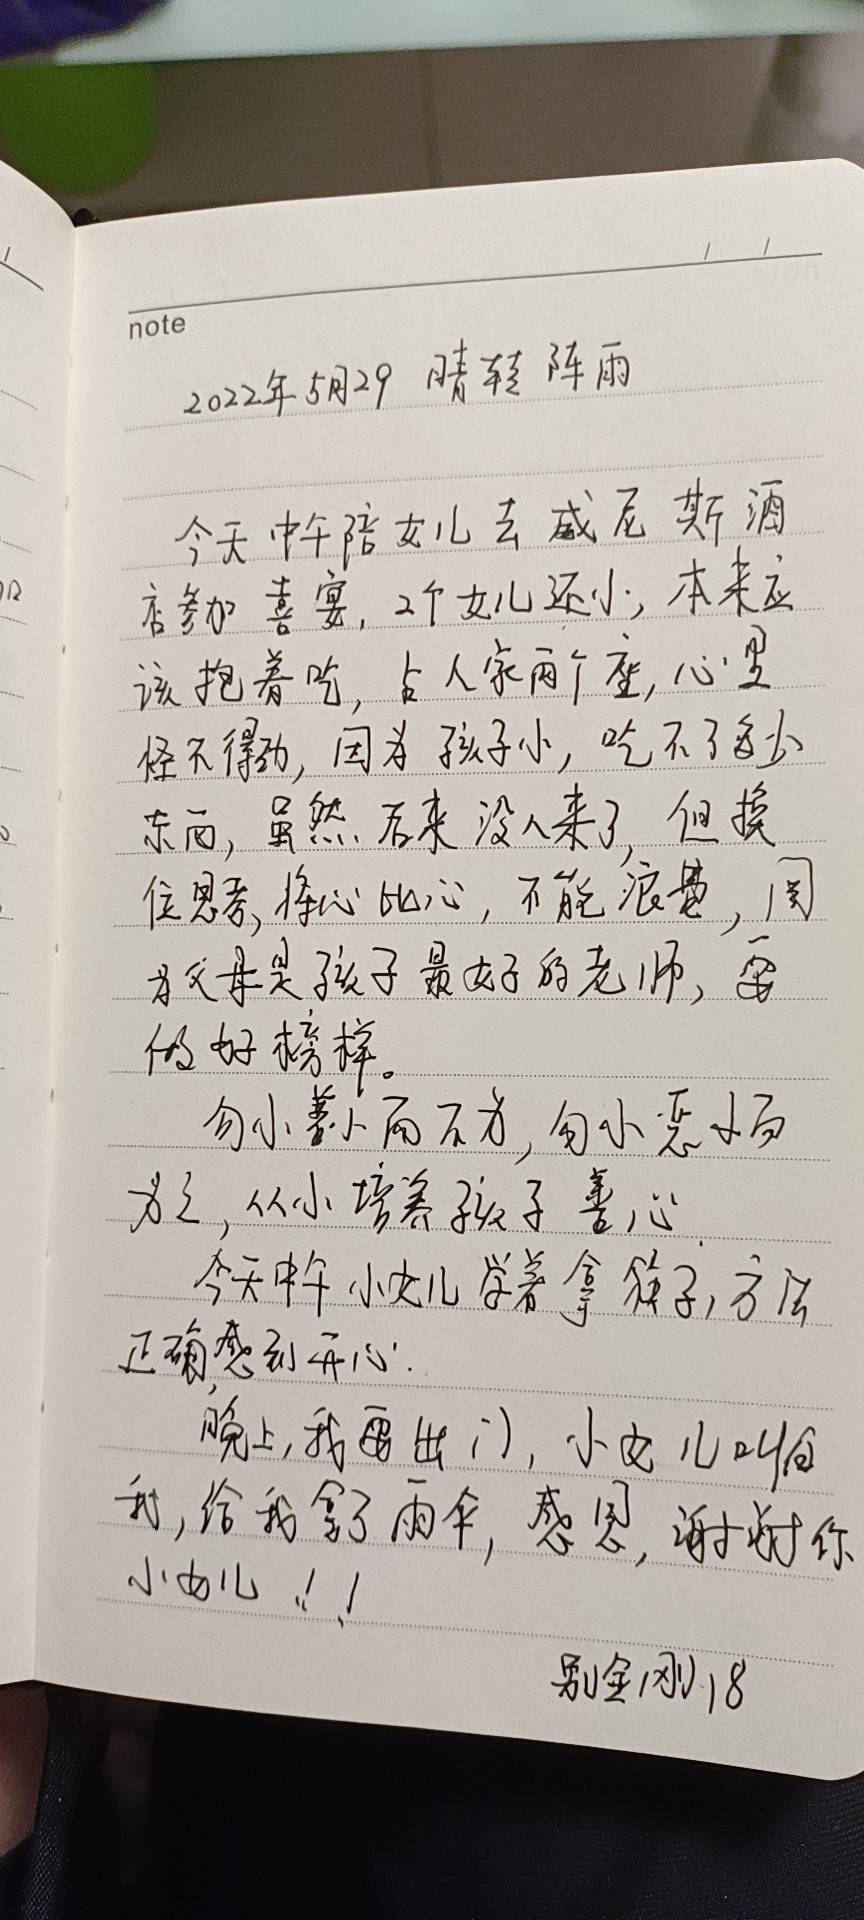 note
2022年5月29 晴转阵雨
今天中午陪女儿去威尼斯酒
店参加喜宴，2个女儿还小，本来应
该抱着吃，占人家两个座，心里
怪不得劲，因为孩子小，吃不了多少
东西，虽然后来没人来了，但换
位思考，将心比心，不能浪费，因
为父母是孩子最好的老师，要
做好榜样。
勿小善小而不为，勿小恶小而
为之，从小培养孩子善心.
今天中午小女儿学着拿筷子，方法
正确，感到开心.
晚上，我要出门，小女儿叫住
我，给我拿了雨伞，感恩，谢谢你
小女儿！！
别金刚.18